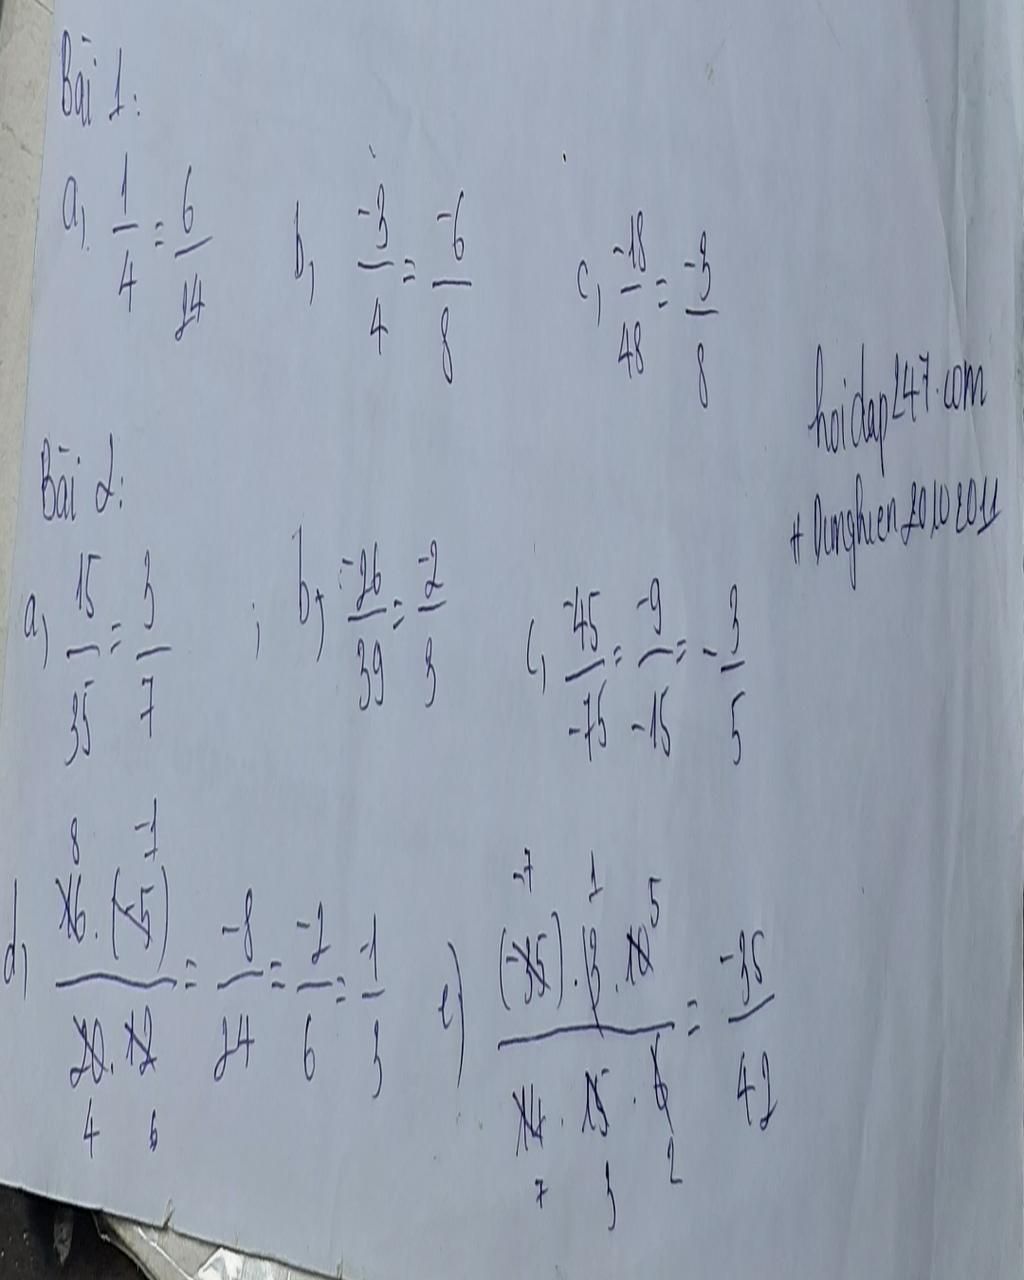 Bài 1:
a, 1/4 = 6/24 b, -3/4 = -6/8 c, -18/48 = -3/8
hoidap247.com
Bài 2:
+ Dunghien20102011
a, 15/35 = 3/7 ; b, -26/39 = -2/3 c, -45/-75 = -9/-15 = -3/5
8 -1
d, 16.(-5)/20.12 = -8/24 = -2/6 = -1/3
4 6
-7 1 5
e) (-35).3.10/14.15.6 = -35/42
7 3 2